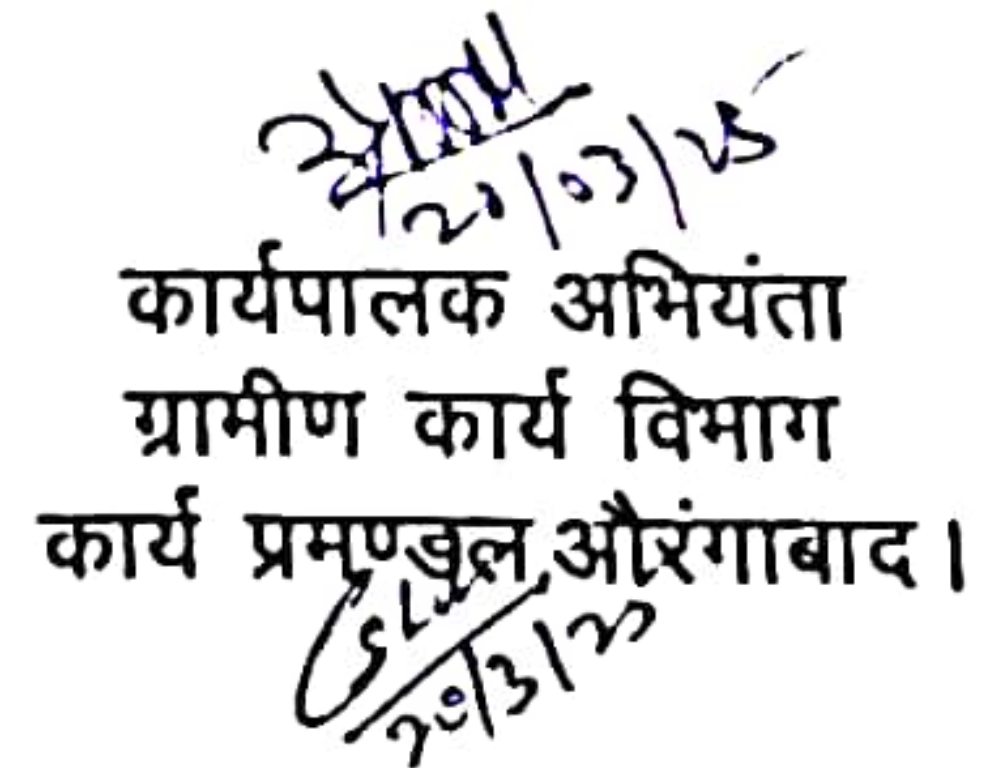 20/03/25
कार्यपालक अभियंता
ग्रामीण कार्य विभाग
कार्य प्रमण्डल, औरंगाबाद।
20/3/25